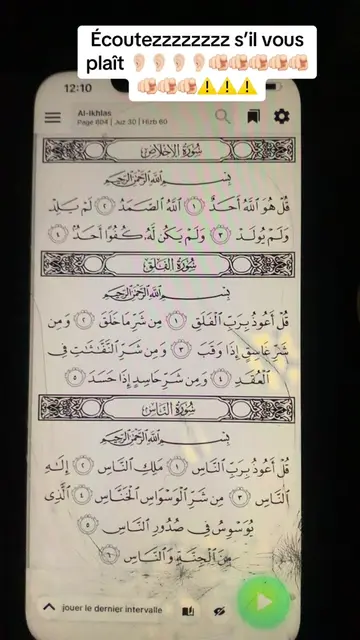 Écoutezzzzzzzz s’il vous
plaît 👂🏻👂🏻👂🏻👂🏻🫵🏻🫵🏻🫵🏻🫵🏻🫵🏻
🫵🏻🫵🏻🫵🏻⚠️⚠️⚠️
12:10
Al-Ikhlas
Page 604 | Juz 30 | Hizb 60
سُورَةُ الإِخْلَاصِ
بِسْمِ اللَّهِ الرَّحْمَٰنِ الرَّحِيمِ
قُلْ هُوَ اللَّهُ أَحَدٌ ١ اللَّهُ الصَّمَدُ ٢ لَمْ يَلِدْ
وَلَمْ يُولَدْ ٣ وَلَمْ يَكُن لَّهُ كُفُوًا أَحَدٌ ٤
سُورَةُ الفَلَقِ
بِسْمِ اللَّهِ الرَّحْمَٰنِ الرَّحِيمِ
قُلْ أَعُوذُ بِرَبِّ الْفَلَقِ ١ مِن شَرِّ مَا خَلَقَ ٢ وَمِن
شَرِّ غَاسِقٍ إِذَا وَقَبَ ٣ وَمِن شَرِّ النَّفَّاثَاتِ فِي
الْعُقَدِ ٤ وَمِن شَرِّ حَاسِدٍ إِذَا حَسَدَ ٥
سُورَةُ النَّاسِ
بِسْمِ اللَّهِ الرَّحْمَٰنِ الرَّحِيمِ
قُلْ أَعُوذُ بِرَبِّ النَّاسِ ١ مَلِكِ النَّاسِ ٢ إِلَٰهِ
النَّاسِ ٣ مِن شَرِّ الْوَسْوَاسِ الْخَنَّاسِ ٤ الَّذِي
يُوَسْوِسُ فِي صُدُورِ النَّاسِ ٥
مِنَ الْجِنَّةِ وَالنَّاسِ ٦
jouer le dernier intervalle